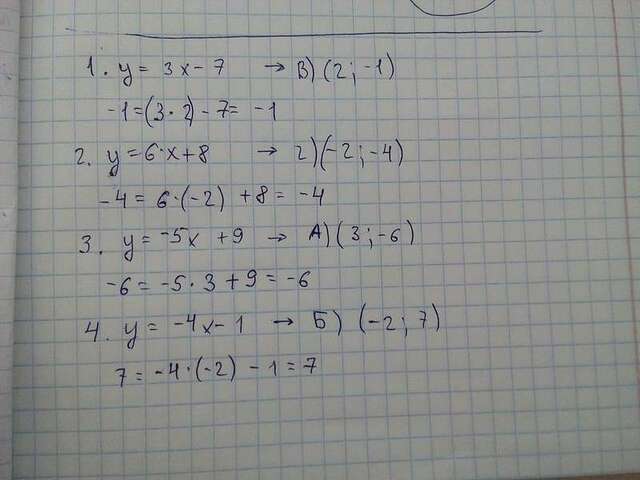 1. y = 3x - 7 → В) (2; -1)
-1 = (3 · 2) - 7 = -1
2. y = 6·x + 8 → г) (-2; -4)
-4 = 6·(-2) + 8 = -4
3. y = -5x + 9 → А) (3; -6)
-6 = -5 · 3 + 9 = -6
4. y = -4x - 1 → Б) (-2; 7)
7 = -4·(-2) - 1 = 7